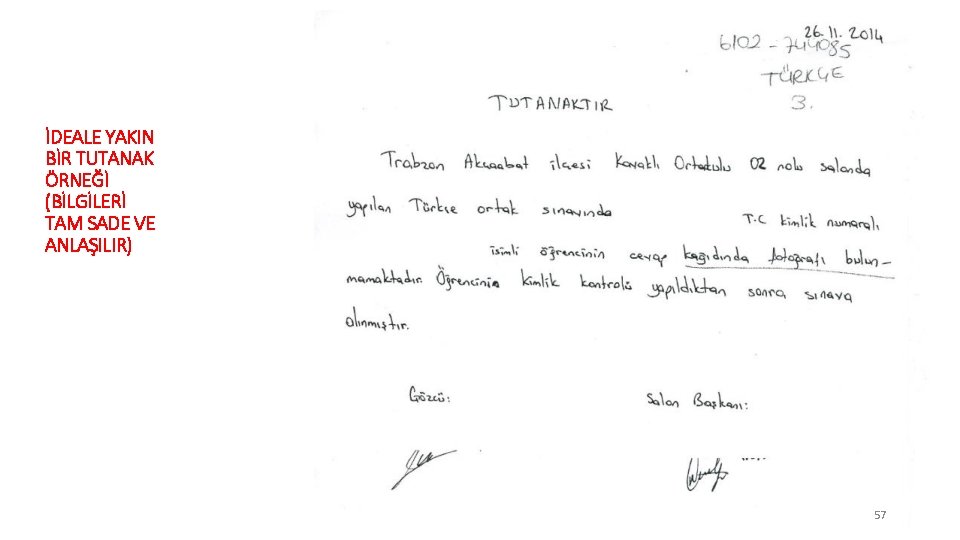 İDEALE YAKIN
BİR TUTANAK
ÖRNEĞİ
(BİLGİLERİ
TAM SADE VE
ANLAŞILIR)
26.11.2014
6102-744085
TÜRKÇE
3.
TUTANAKTIR
Trabzon Akçaabat ilçesi Kavaklı Ortaokulu 02 nolu salonda
yapılan Türkçe ortak sınavında T.C kimlik numaralı
isimli öğrencinin cevap kağıdında fotoğrafı bulun-
mamaktadır. Öğrencinin kimlik kontrolü yapıldıktan sonra sınava
alınmıştır.
Gözcü: Salon Başkanı:
57